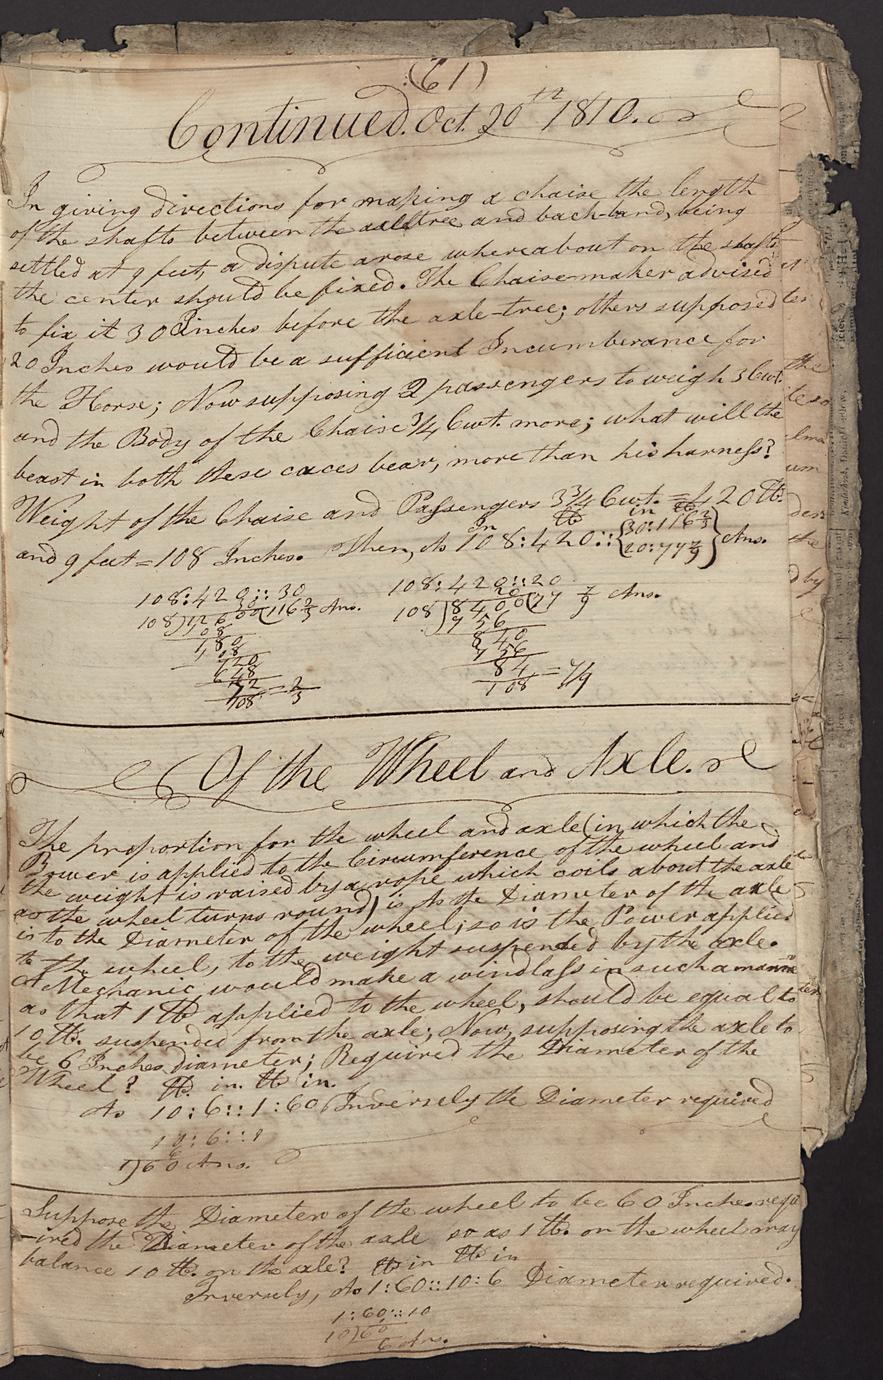 (61)
Continued. Oct. 20th 1810.
In giving directions for making a chaise the length
of the shafts between the axletree and back-band, being
settled at 9 feet, a dispute arose whereabout on the shafts
the center should be fixed. The Chaise-maker advised
to fix it 30 Inches before the axle-tree; others supposed
20 Inches would be a sufficient Incumberance for
the Horse; Now supposing 2 passengers to weigh 3 Cwt.
and the Body of the Chaise 3/4 Cwt. more; what will the
beast in both these caces bear, more than his harness?
Weight of the Chaise and Passengers 3 3/4 Cwt. = 420 lb.
In lb in lb
and 9 feet = 108 Inches. Then, As 108:420::{30:116 2/3
20:77 7/9} Ans.
108:420::30
30
108)12600(116 2/3 Ans.
108
180
108
720
648
72/108 = 2/3
108:420::20
20
108)8400(77 7/9 Ans.
756
840
756
84/108 = 7/9
Of the Wheel and Axle.
The proportion for the wheel and axle (in which the
Power is applied to the Circumference of the wheel and
the weight is raised by a rope which coils about the axle
as the wheel turns round) is As the Diameter of the axle
is to the Diameter of the wheel; so is the Power applied
to the wheel, to the weight suspended by the axle.
A Mechanic would make a windlass in such a manner
as that 1 lb applied to the wheel, should be equal to
10 lb. suspended from the axle; Now, supposing the axle to
be 6 Inches diameter; Required the Diameter of the
Wheel? lb. in. lb in.
As 10:6::1:60 Inversely the Diameter required
10:6::1
1)60 Ans.
Suppose the Diameter of the wheel to be 60 Inches requ
-ired the Diameter of the axle so as 1 lb. on the wheel may
balance 10 lb. on the axle? lb in lb in
Inversely, As 1:60::10:6 Diameter required.
1:60::10
10)60
6 Ans.